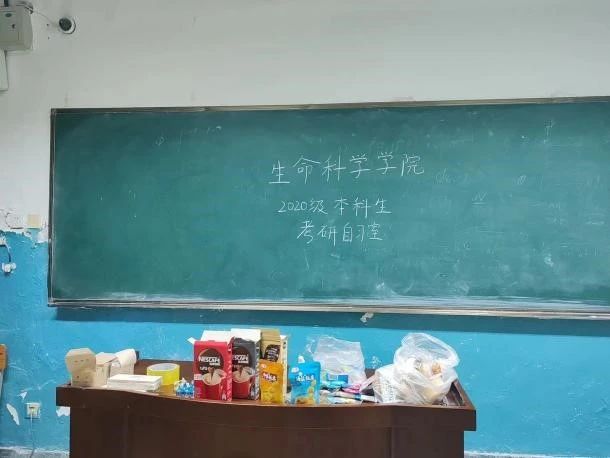 生命科学学院
2020级本科生
考研自习室
NESCAFÉ
NESCAFÉ